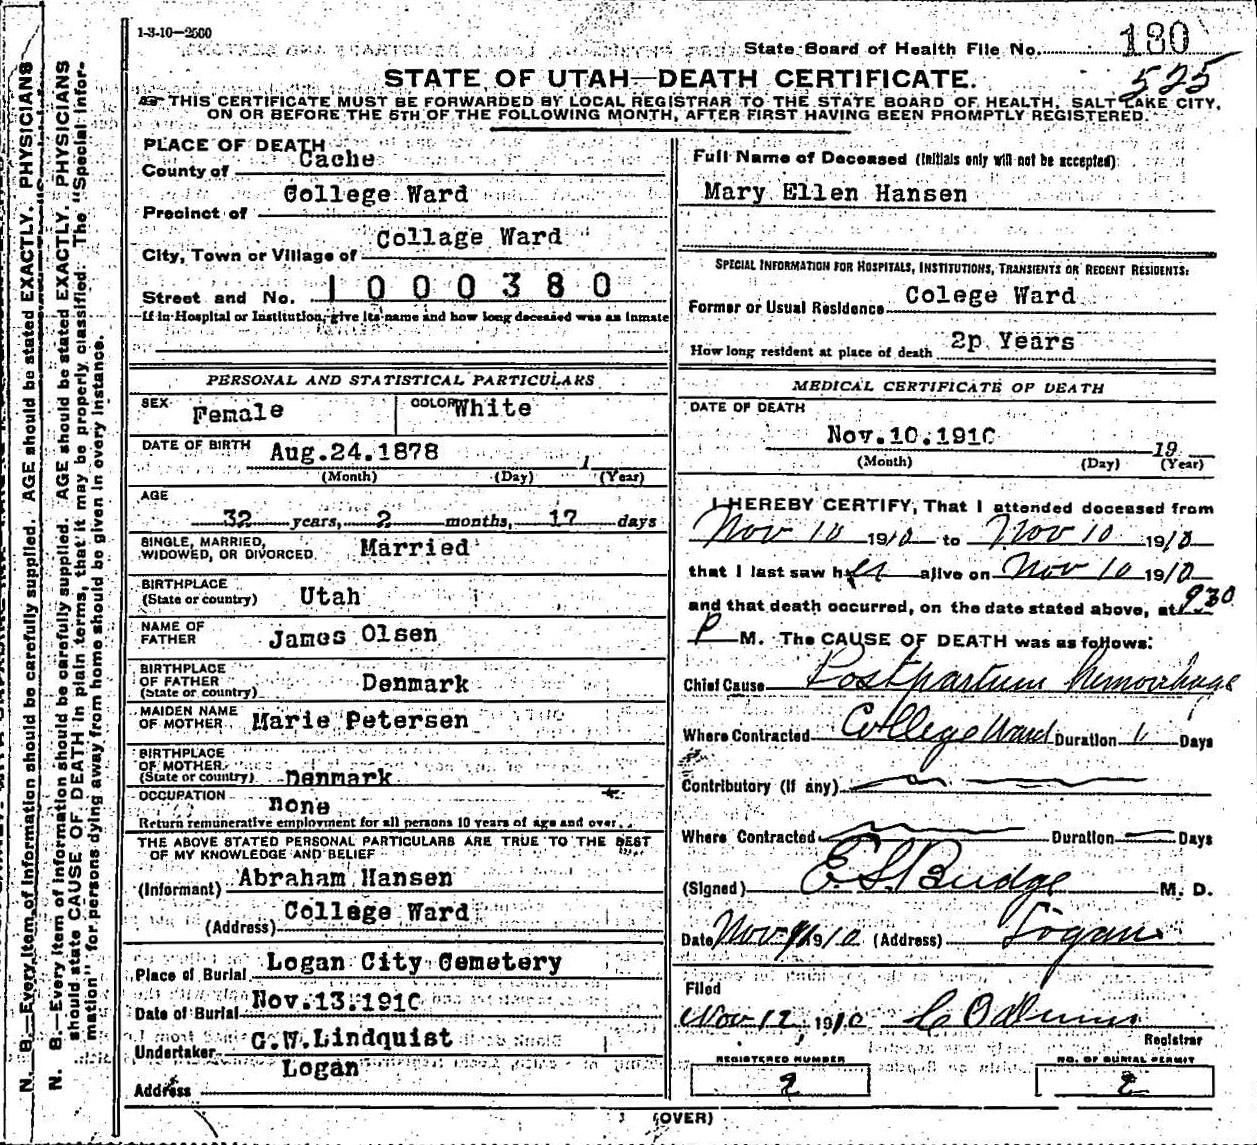 1-3-10—2500
State Board of Health File No. 180
525
STATE OF UTAH—DEATH CERTIFICATE.
THIS CERTIFICATE MUST BE FORWARDED BY LOCAL REGISTRAR TO THE STATE BOARD OF HEALTH, SALT LAKE CITY,
ON OR BEFORE THE 5TH OF THE FOLLOWING MONTH, AFTER FIRST HAVING BEEN PROMPTLY REGISTERED.
PLACE OF DEATH
County of Cache
Precinct of College Ward
City, Town or Village of Collage Ward
Street and No. 1000380
If in Hospital or Institution, give its name and how long deceased was an inmate
PERSONAL AND STATISTICAL PARTICULARS
SEX Female COLOR White
DATE OF BIRTH Aug.24.1878 1
(Month) (Day) (Year)
AGE
32 years, 2 months, 17 days
SINGLE, MARRIED,
WIDOWED, OR DIVORCED. Married
BIRTHPLACE
(State or country) Utah
NAME OF
FATHER James Olsen
BIRTHPLACE
OF FATHER
(State or country) Denmark
MAIDEN NAME
OF MOTHER Marie Petersen
BIRTHPLACE
OF MOTHER
(State or country) Denmark
OCCUPATION none
Return remunerative employment for all persons 10 years of age and over.
THE ABOVE STATED PERSONAL PARTICULARS ARE TRUE TO THE BEST
OF MY KNOWLEDGE AND BELIEF
(Informant) Abraham Hansen
(Address) College Ward
Place of Burial Logan City Cemetery
Date of Burial Nov.13.1910
Undertaker C.W.Lindquist
Address Logan
Full Name of Deceased (Initials only will not be accepted):
Mary Ellen Hansen
SPECIAL INFORMATION FOR HOSPITALS, INSTITUTIONS, TRANSIENTS OR RECENT RESIDENTS:
Former or Usual Residence Colege Ward
How long resident at place of death 2p Years
MEDICAL CERTIFICATE OF DEATH
DATE OF DEATH
Nov.10.1910 19
(Month) (Day) (Year)
I HEREBY CERTIFY, That I attended deceased from
Nov 10 1910 to Nov 10 1910
that I last saw her alive on Nov 10 1910
and that death occurred, on the date stated above, at 930
P M. The CAUSE OF DEATH was as follows:
Chief Cause Postpartum Hemorrhage
Where Contracted College Ward Duration 1 Days
Contributory (If any)
Where Contracted Duration Days
(Signed) E. S. Budge M. D.
Date Nov 1910 (Address) Logan
Filed
Nov 12 1910
Registrar
REGISTERED NUMBER
2
NO. OF BURIAL PERMIT
2
(OVER)
N. B.—Every item of information should be carefully supplied. AGE should be stated EXACTLY. PHYSICIANS
N. B.—Every item of information should be carefully supplied. AGE should be stated EXACTLY. PHYSICIANS
should state CAUSE OF DEATH in plain terms, that it may be properly classified. The "Special Infor-
mation" for persons dying away from home should be given in every instance.